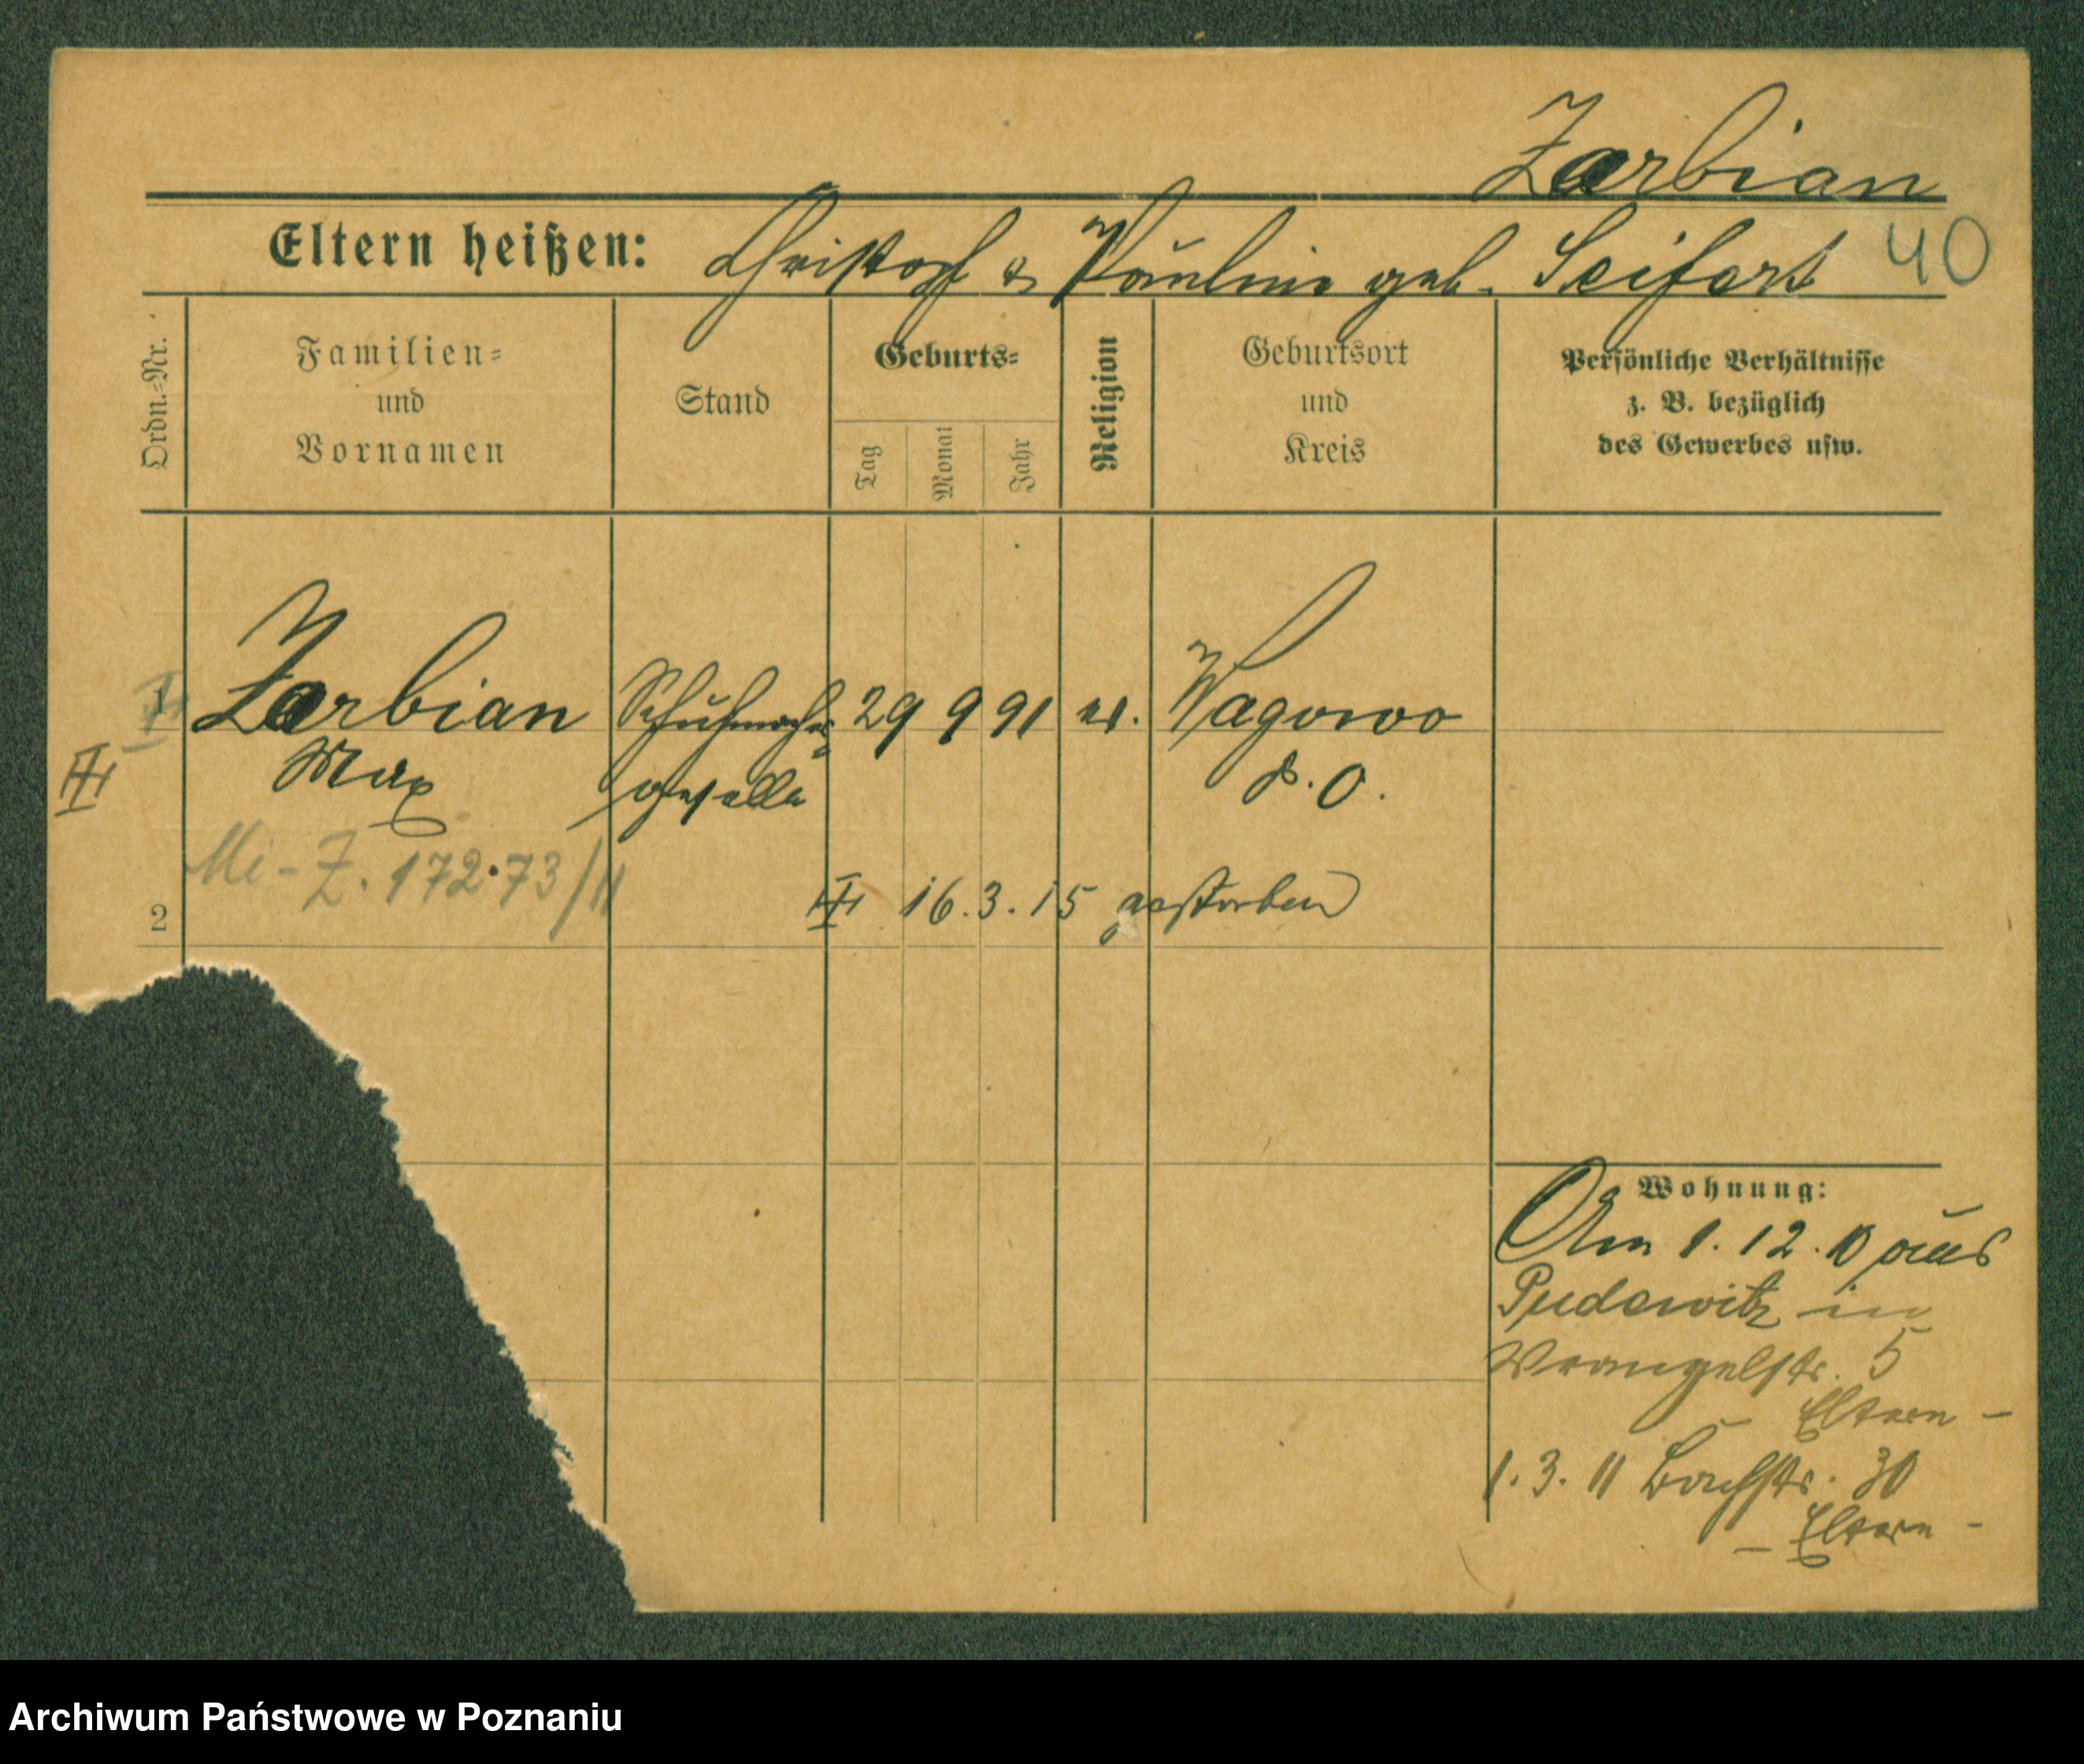 Zarbian
Eltern heißen: Christof & Pauline geb. Seifert 40
Ordn.-Nr.
Familien-
und
Vornamen
Stand
Geburts-
Tag
Monat
Jahr
Religion
Geburtsort
und
Kreis
Persönliche Verhältnisse
z. B. bezüglich
des Gewerbes usw.
1 Zarbian Schuhmacher 29 9 91 ev. Wagowo
III Max geselle P. O.
Mi - Z. 172.73/11
2 III 16.3.15 gestorben
Wohnung:
Am 1.12.10 aus
Pudewitz in
Wrangelstr. 5
Eltern -
1.3.11 Bachstr. 30
- Eltern -
Archiwum Państwowe w Poznaniu